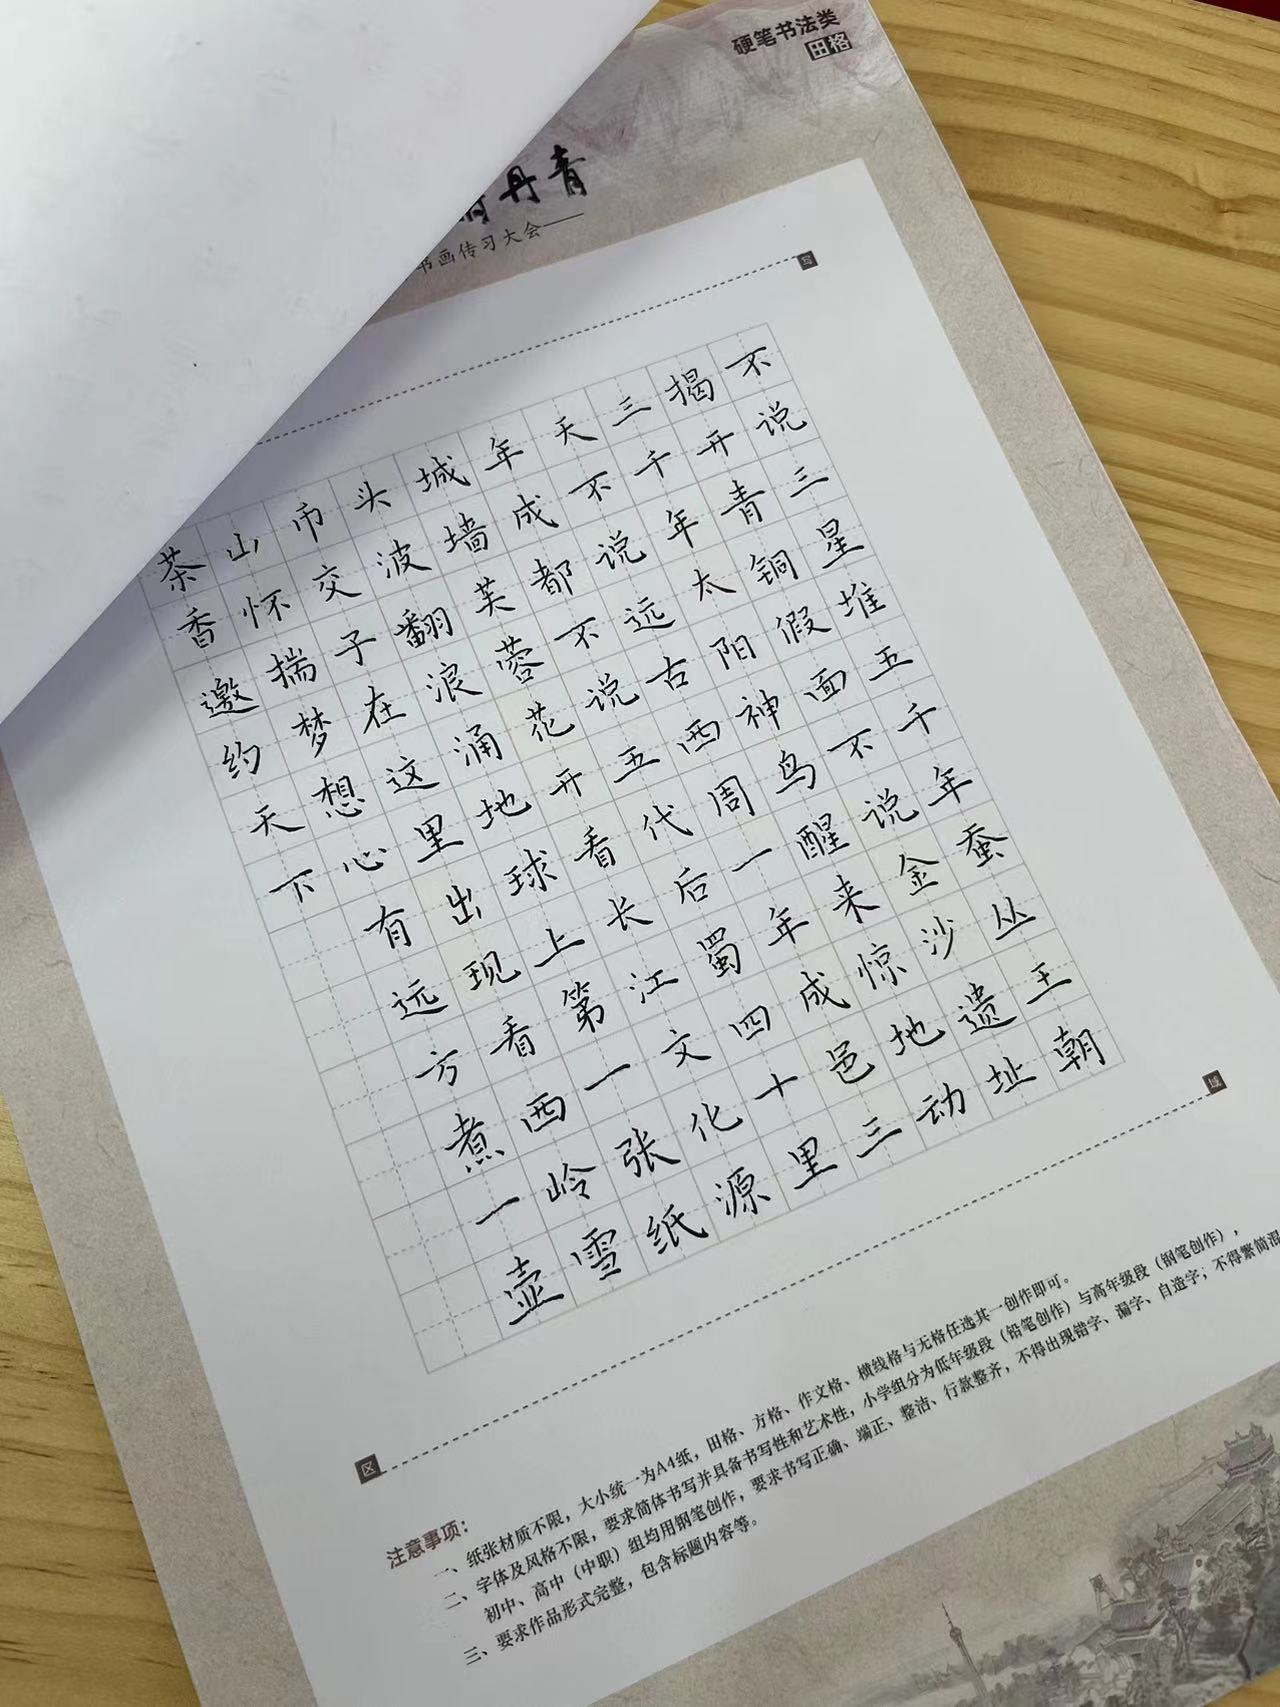 硬笔书法类
田格
丹青
书画传习大会
写
不说三星堆五千年蚕丛王朝
揭开青铜假面不说金沙遗址
三千年太阳神鸟醒来惊地动
天不说远古西周一年成邑三
年成都不说五代后蜀四十里
城墙芙蓉花开看长江文化源
头波翻浪涌地球上第一张纸
币交子在这里出现看西岭雪
山怀揣梦想心有远方煮一壶
茶香邀约天下
域
区
注意事项：
一、纸张材质不限，大小统一为A4纸，田格、方格、作文格、横线格与无格任选其一创作即可。
二、字体及风格不限，要求简体书写并具备书写性和艺术性，小学组分为低年级段（铅笔创作）与高年级段（钢笔创作），
初中、高中（中职）组均用钢笔创作，要求书写正确、端正、整洁、行款整齐，不得出现错字、漏字、自造字；不得繁简混
三、要求作品形式完整，包含标题内容等。